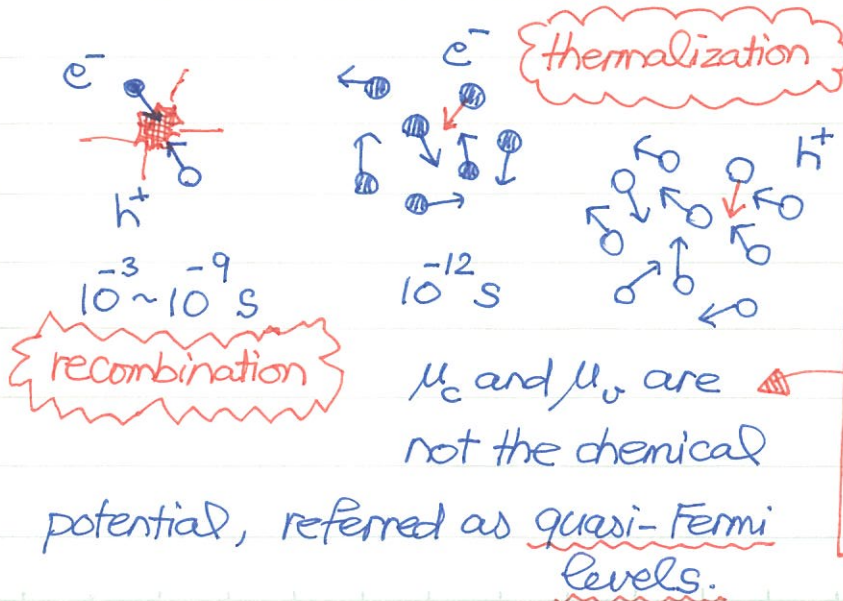 e⁻
h⁺
10⁻³ ~ 10⁻⁹ s
recombination
e⁻
10⁻¹² s
thermalization
h⁺
μc and μv are
not the chemical
potential, referred as quasi-Fermi
levels.